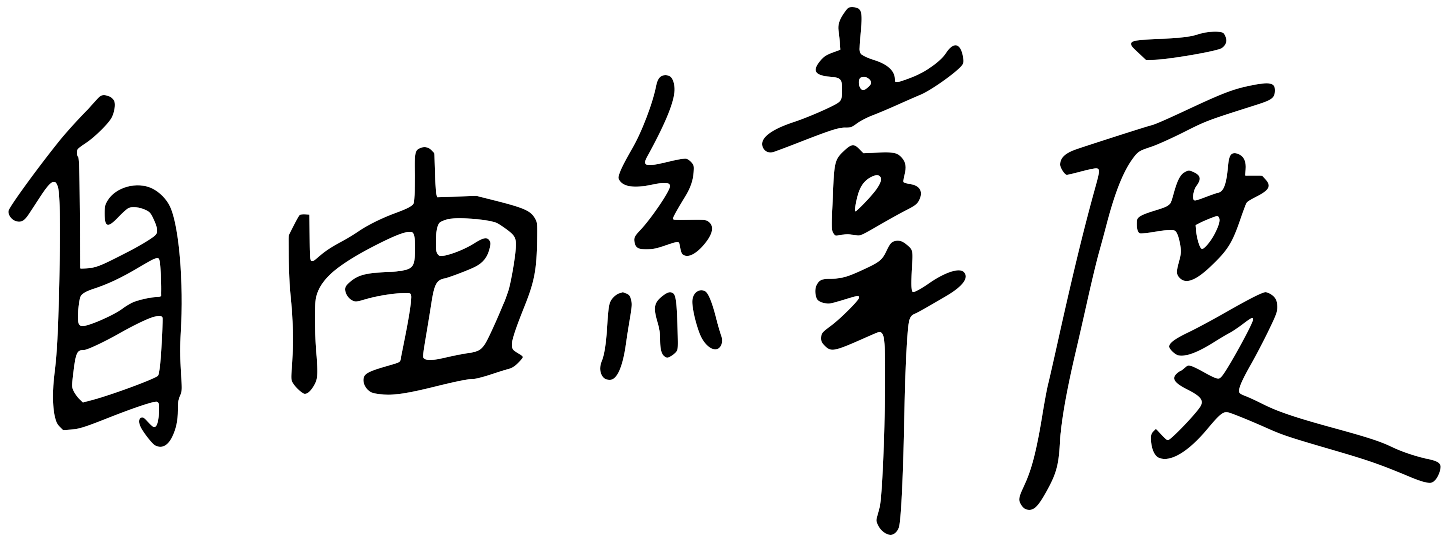 自由緯度